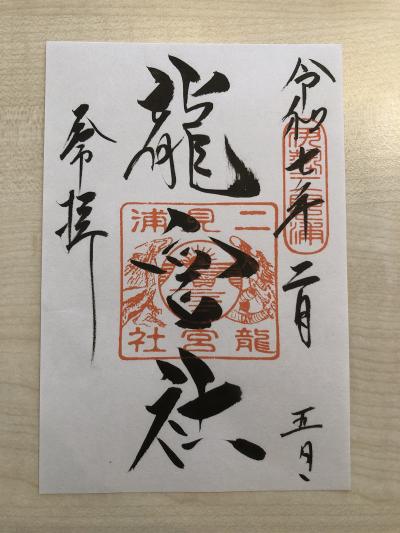 令和七年二月 五日
伊勢二見浦
龍宮社
二見浦
龍宮社
奉拝